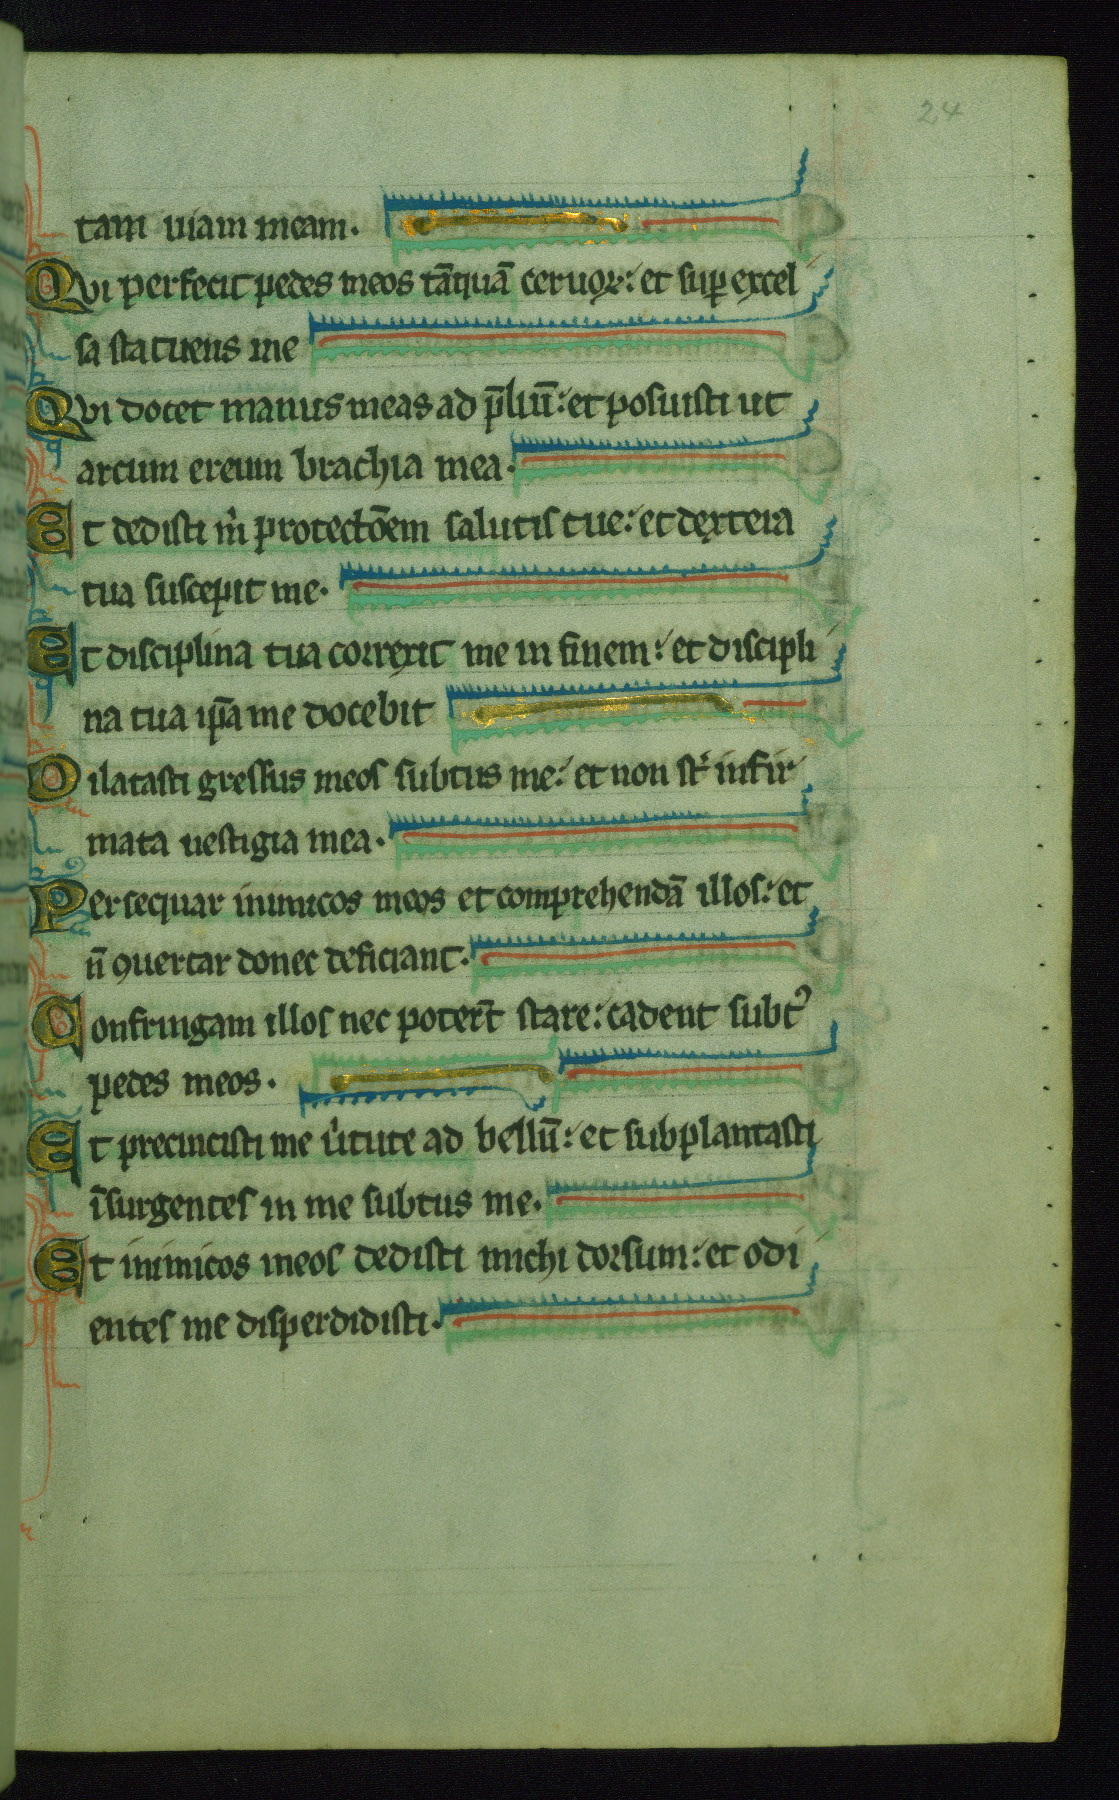 24
tam uiam meam.
Qui perfecit pedes meos tāquā ceruoꝝ: et suꝑ excel
sa statuens me
Qui docet manus meas ad p̄liū: et posuisti ut
arcum ereum brachia mea.
Et dedisti m̍ protectōem salutis tue: et dextera
tua suscepit me.
Et disciplina tua correxit me in finem: et discipli
na tua ip̄a me docebit
Dilatasti gressus meos subtus me: et non st̍ infir
mata uestigia mea.
Persequar inimicos meos et comprehendā illos: et
n̄ ꝯuertar donec deficiant.
Confringam illos nec poter̄t stare: cadent subt᷒
pedes meos.
Et precincisti me u̍tute ad bellū: et subplantasti
īsurgentes in me subtus me.
Et inimicos meos dedisti michi dorsum: et odi
entes me disperdidisti.